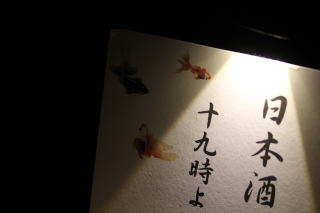 日本酒
十九時よ